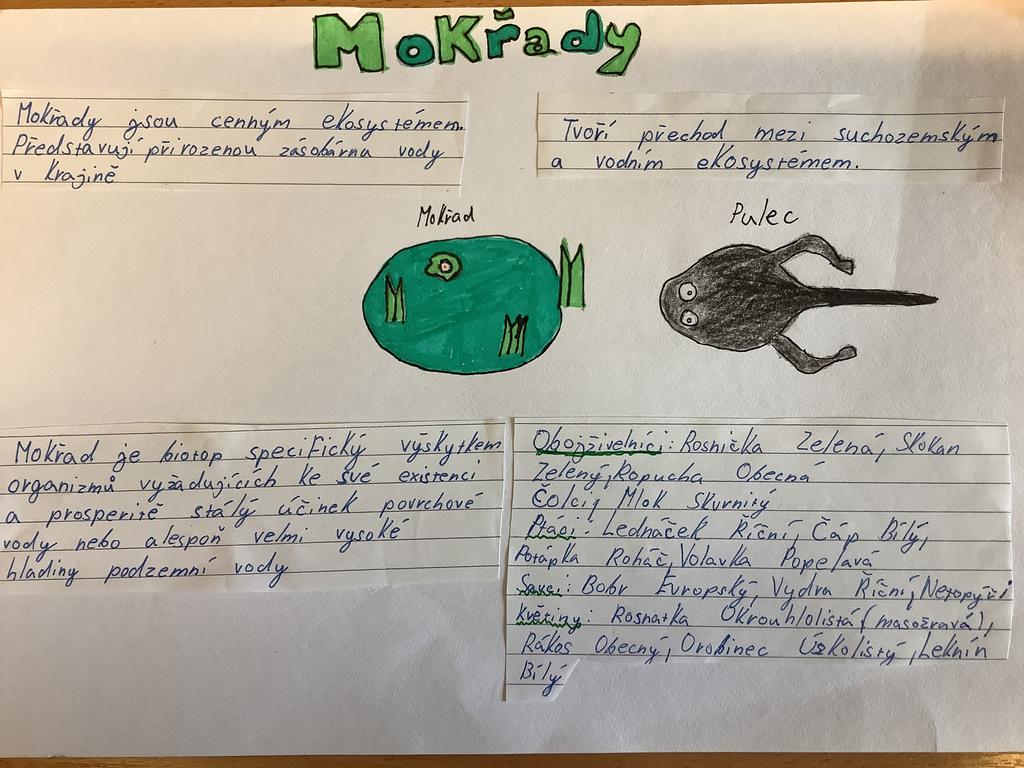 Mokřady
Mokřady jsou cenným ekosystémem.
Představují přirozenou zásobárna vody
v krajině
Tvoří přechod mezi suchozemským
a vodním ekosystémem.
Mokřad
Pulec
Mokřad je biotop specifický výskytkem
organizmů vyžadujících ke své existenci
a prosperitě stálý účinek povrchové
vody nebo alespoň velmi vysoké
hladiny podzemní vody
Obojživelníci: Rosnička Zelená, Skokan
Zelený, Ropucha Obecná
Čolci, Mlok Skvrnitý
Ptáci: Ledňáček Říční, Čáp Bílý,
Potápka Roháč, Volavka Popelavá
Savci: Bobr Evropský, Vydra Říční, Netopýři
Květiny: Rosnatka Okrouhlolistá (masožravá),
Rákos Obecný, Orobinec Úskolistý, Leknín
Bílý